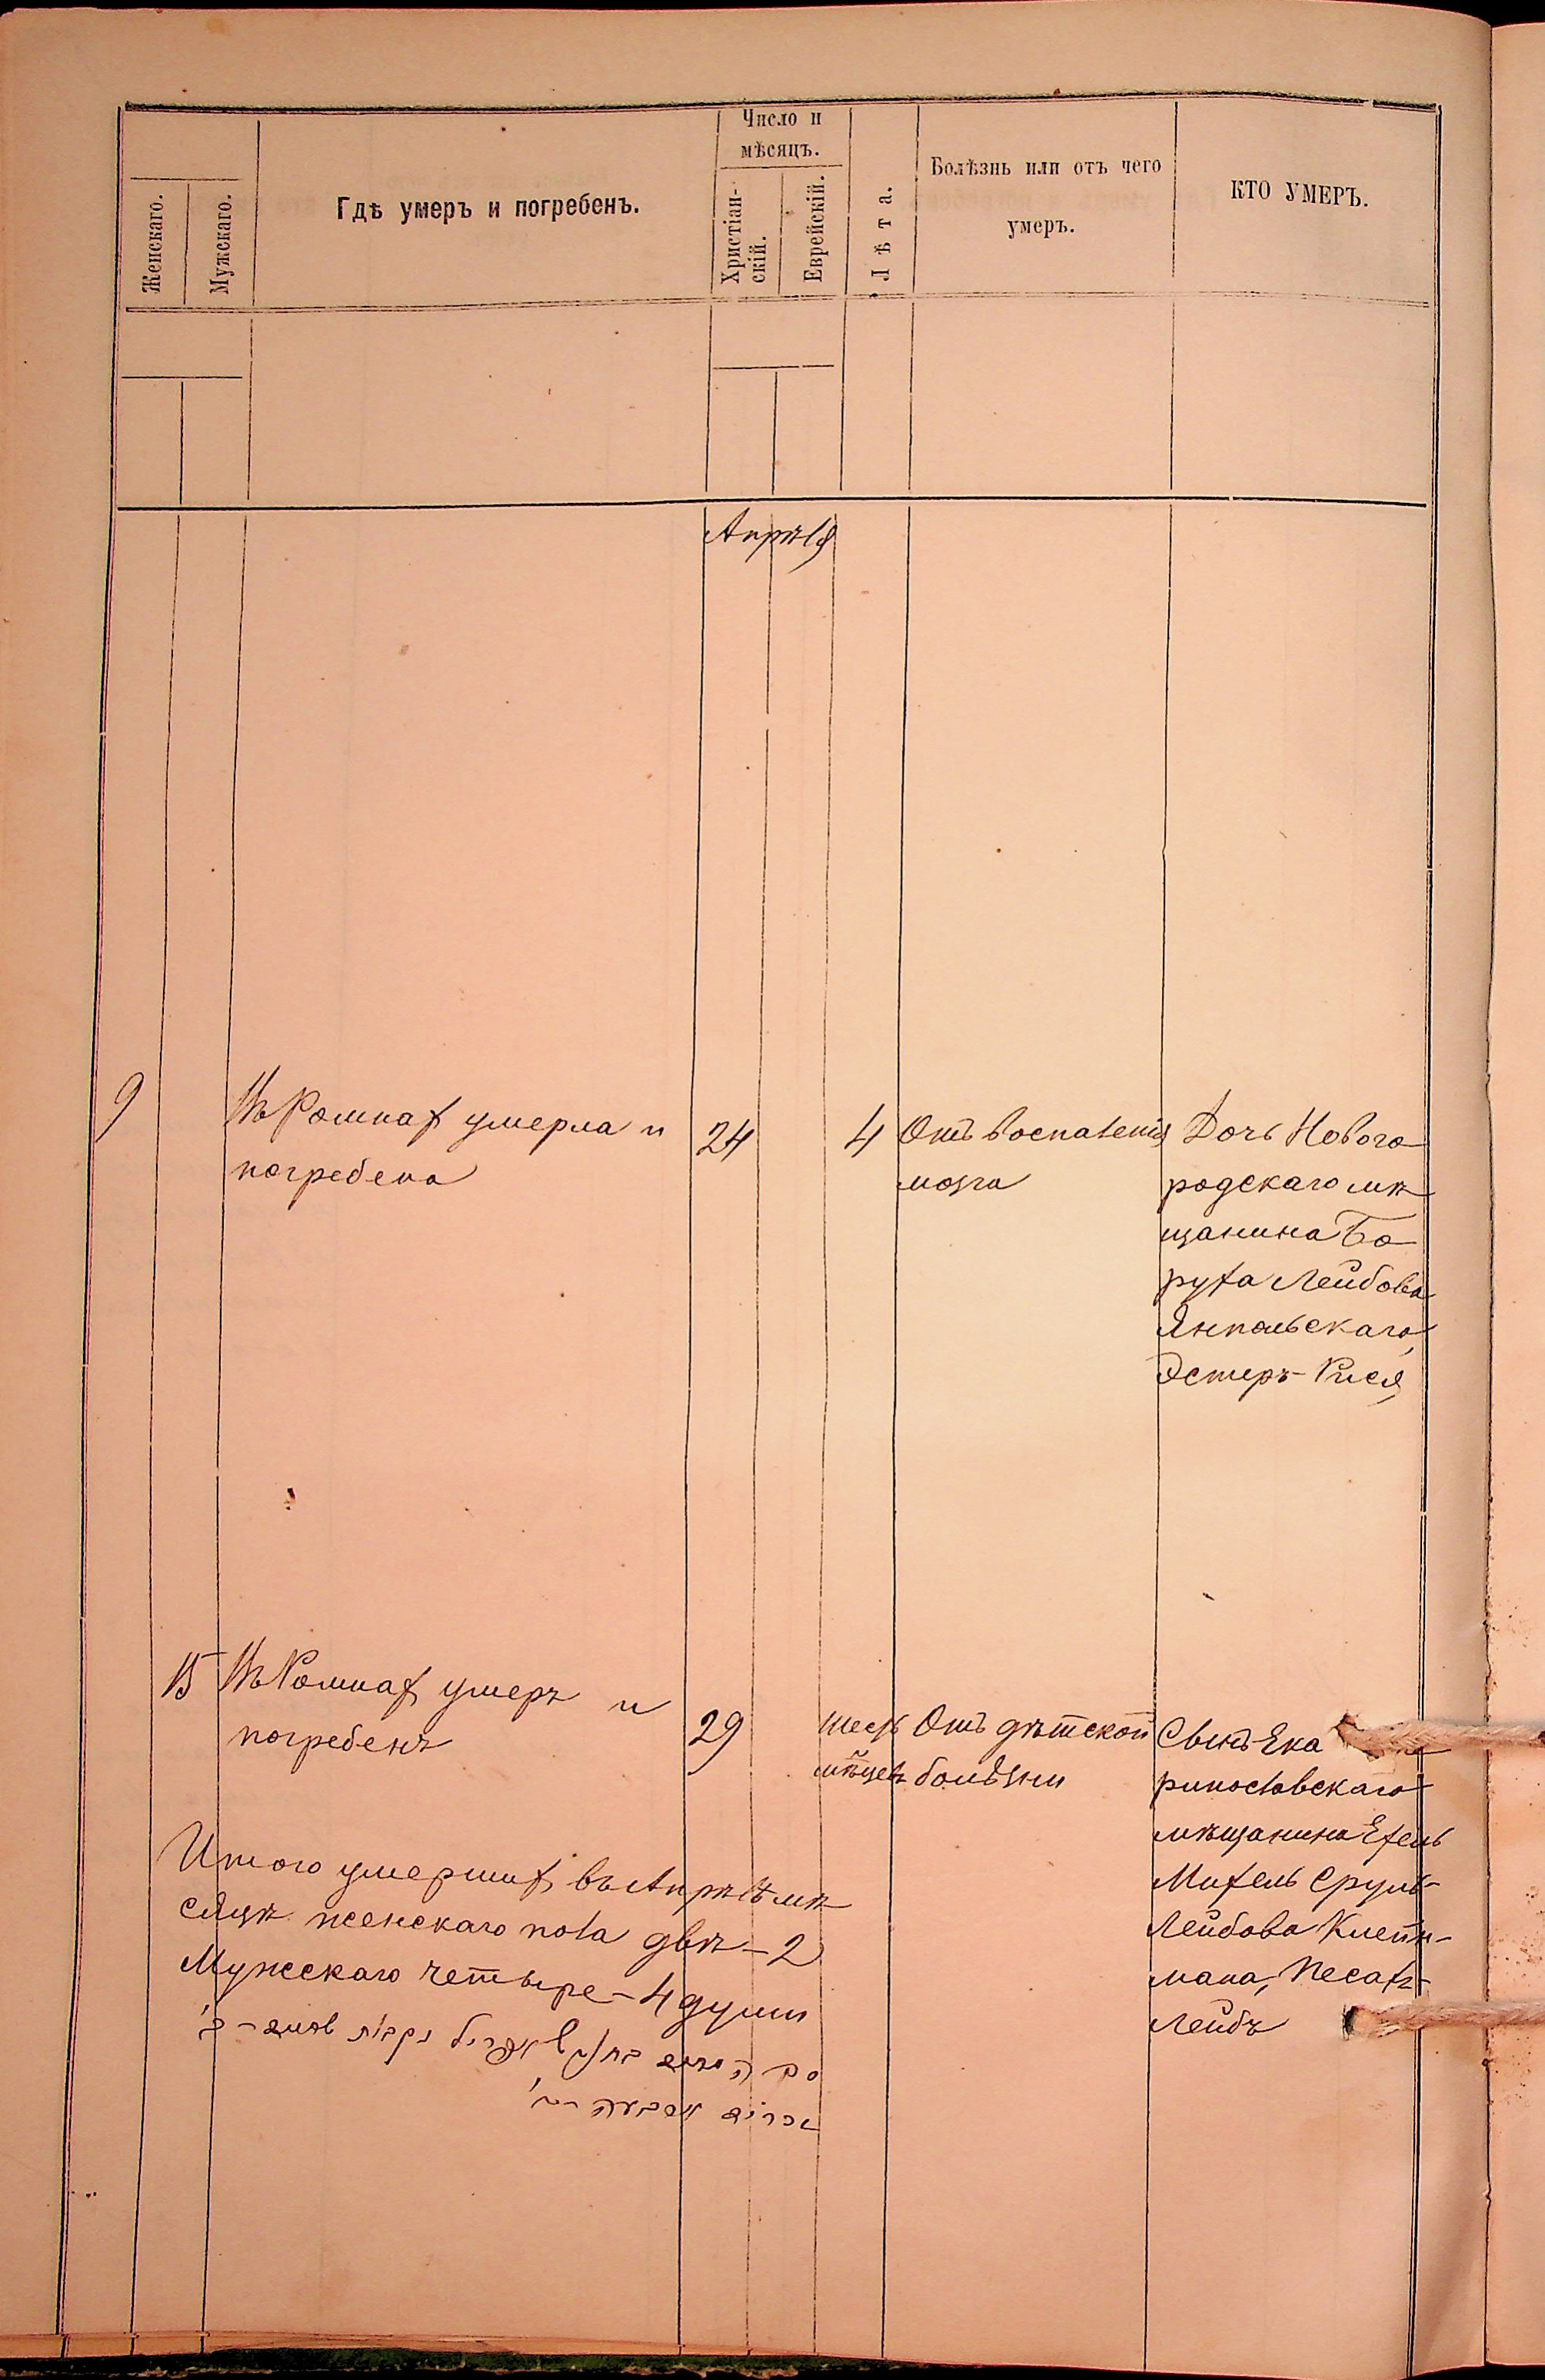 Женскаго.
Мужскаго.
Гдѣ умеръ и погребенъ.
Число и
мѣсяцъ.
Христіан-
скій.
Еврейскій.
Лѣта.
Болѣзнь или отъ чего
умеръ.
КТО УМЕРЪ.
Апрѣля
9
Въ Ромнах умерла и
погребена
24
4
Отъ воспаленія
мозга
Дочь Новго-
родскаго мѣ
щанина Бо
руха Лейбова
Янпольскаго
Эстеръ-Рися
15
Въ Ромнах умеръ и
погребенъ
29
шесть
мѣсяцев
Отъ дѣтской
болѣзни
Сынъ Ека
ринославскаго
мѣщанина Ехель
Михель Сруль-
Лейбова
мана, Песахъ-
Лейбъ
Итого умерших въ Апрѣлѣ мѣ
сяцѣ женскаго пола двѣ-2
Мужескаго четыре-4 души